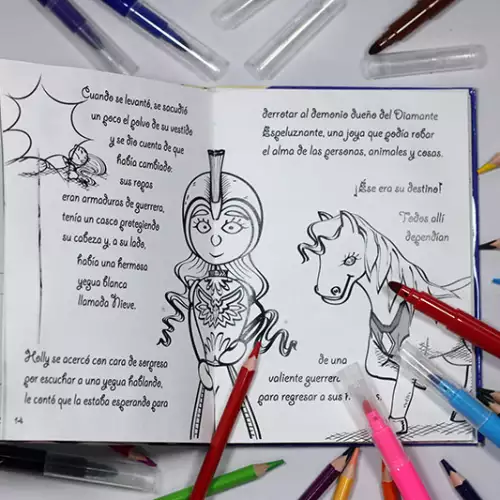 Cuando se levantó, se sacudió
un poco el polvo de su vestido
y se dio cuenta de que
había cambiado:
sus ropas
eran armaduras de guerrera,
tenía un casco protegiendo
su cabeza y, a su lado,
había una hermosa
yegua blanca
llamada Nieve.
Holly se acercó con cara de sorpresa
por escuchar a una yegua hablando,
le contó que la estaba esperando para
14
derrotar al demonio dueño del Diamante
Espeluznante, una joya que podía robar
el alma de las personas, animales y cosas.
¡Ése era su destino!
Todos allí
dependían
de una
valiente guerrera
para regresar a sus